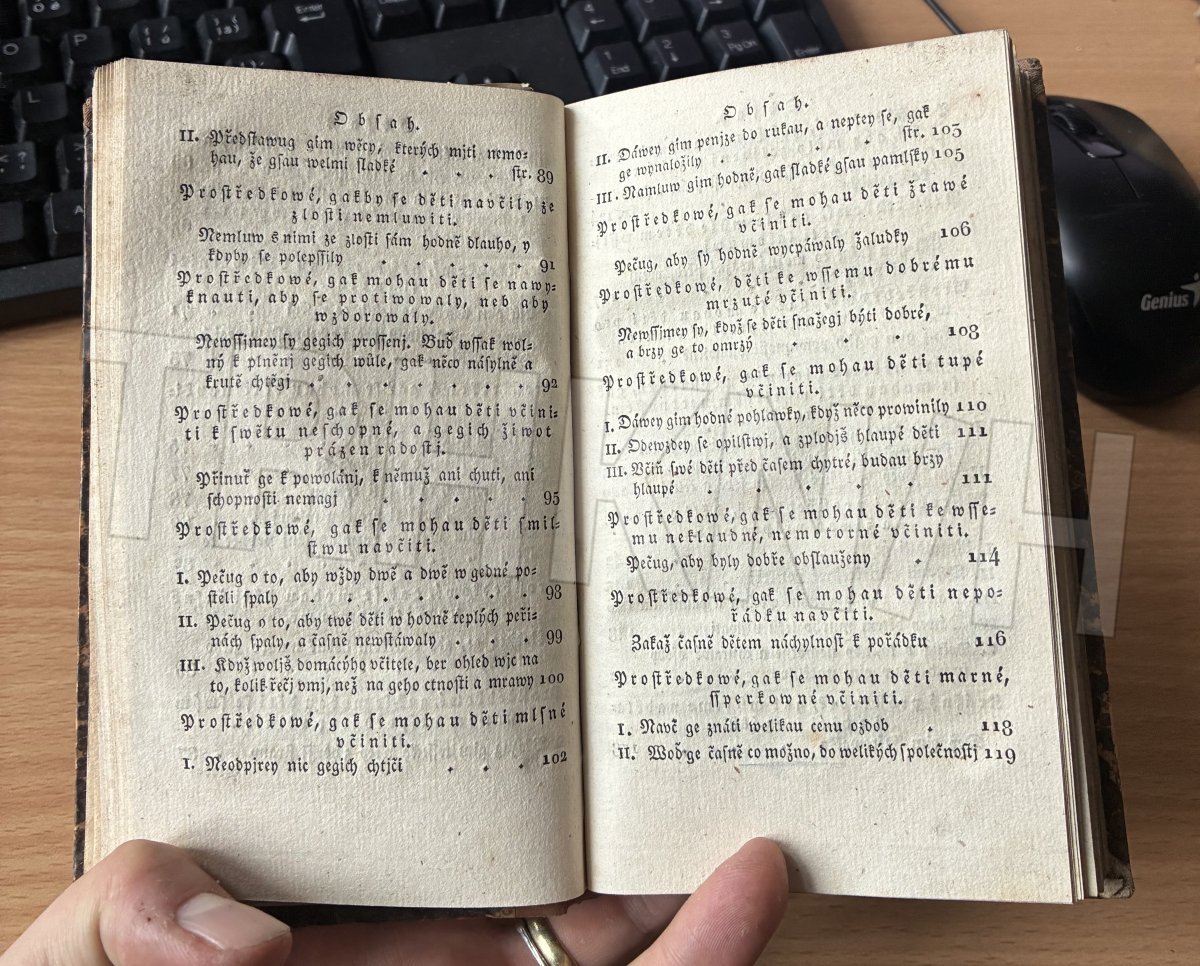 Obsah.
II. Předstawug gim wěcy, kterých mjti nemo-
hau, že gsau welmi sladké . . . str. 89
Prostředkowé, gakby se děti navčily ze
zlosti nemluwiti.
Nemluw s nimi ze zlosti sám hodně dlauho, y
kdyby se polepssily . . . . . 91
Prostředkowé, gak mohau děti se nawy-
knauti, aby se protiwowaly, neb aby
wzdorowaly.
Newssjmey sy gegich prossenj. Buď wssak wol-
ný k plněnj gegich wůle, gak něco násylně a
krutě chtěgj . . . . . . . 92
Prostředkowé, gak se mohau děti včini-
ti k swětu neschopné, a gegich žiwot
prázen radostj.
Přinuť ge k powolánj, k němuž ani chuti, ani
schopnosti nemagj . . . . . 95
Prostředkowé, gak se mohau děti smil-
stwu navčiti.
I. Pečug o to, aby wždy dwě a dwě w gedné po-
steli spaly . . . . . . . 98
II. Pečug o to, aby twé děti w hodně teplých peři-
nách spaly, a časně newstáwaly . . . 99
III. Když woljš domácýho včitele, ber ohled wjc na
to, kolik řečj vmj, než na geho ctnosti a mrawy 100
Prostředkowé, gak se mohau děti mlsné
včiniti.
I. Neodpjrey nic gegich chtjči . . . 102
Obsah.
II. Dáwey gim penjze do rukau, a neptey se, gak
ge wynaložily . . . . . str. 103
III. Namluw gim hodně, gak sladké gsau pamlsky 105
Prostředkowé, gak se mohau děti žrawé
včiniti.
Pečug, aby sy hodně wycpáwaly žaludky 106
Prostředkowé, děti ke wssemu dobrému
mrzuté včiniti.
Newssjmey sy, když se děti snažegj býti dobré,
a brzy ge to omrzý . . . . 108
Prostředkowé, gak se mohau děti tupé
včiniti.
I. Dáwey gim hodné pohlawky, když něco prowinily 110
II. Odewzdey se opilstwj, a zplodjš hlaupé děti 111
III. Včiň swé děti před časem chytré, budau brzy
hlaupé . . . . . . 111
Prostředkowé, gak se mohau děti ke wsse-
mu neklaudné, nemotorné včiniti.
Pečug, aby byly dobře obslauženy . 114
Prostředkowé, gak se mohau děti nepo-
řádku navčiti.
Zakaž časně dětem náchylnost k pořádku 116
Prostředkowé, gak se mohau děti marné,
ssperkowné včiniti.
I. Navč ge znáti welikau cenu ozdob . 118
II. Woď ge časně co možno, do welikých společnostj 119
Genius